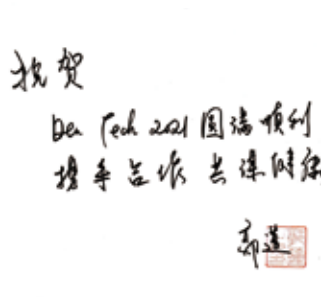 祝贺
Den Tech 2021 圆满顺利
携手合作 共谋健康